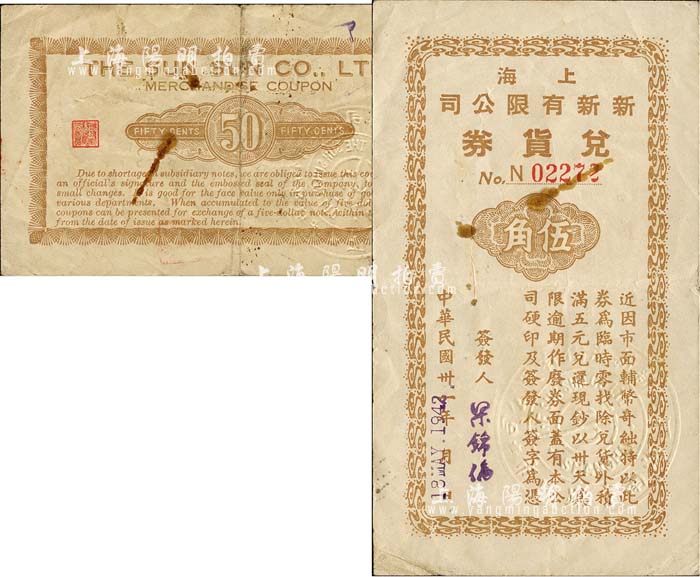 THE SUN SUN CO., LTD
MERCHANDISE COUPON
FIFTY CENTS 50 FIFTY CENTS
Due to shortage of subsidiary notes, we are obliged to issue this cou
an official's signature and the embossed seal of the Company, fo
small changes. It is good for the face value only in purchase of goo
various departments. When accumulated to the value of five dol
coupons can be presented for exchange of a five-dollar note within t
from the date of issue as marked herein.
海上
司公限有新新
券貨兌
No. N 02272
角伍
近因市面輔幣奇絀特發此
券爲臨時零找除兌貨外積
滿五元兌還現鈔以卅天爲
限逾期作廢券面蓋有本公
司硬印及簽發人簽字爲憑
簽發人
中華民國卅一年 月 日
13 MAY. 1942
上海陽明拍賣
www.yangmingauction.com